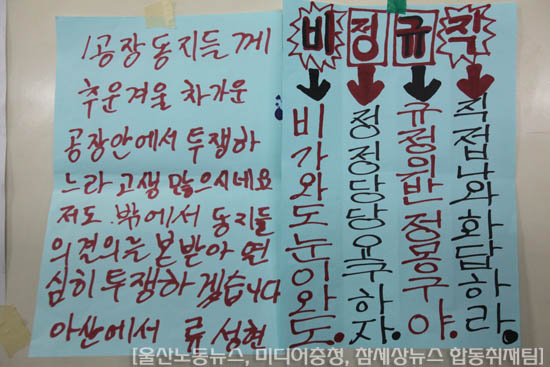 1공장 동지들께
추운겨울 차가운
공장안에서 투쟁하
느라 고생 많으시네요
저도 밖에서 동지들
의 결의는 본받아 연
심히 투쟁하겠습니다
아산에서 류 성현
비정규직
비가와도눈이와도.
정정당당요구하자.
규정의반 정몽구야.
직접나와화답하라.
[울산노동뉴스, 미디어충청, 참세상뉴스 합동취재팀]